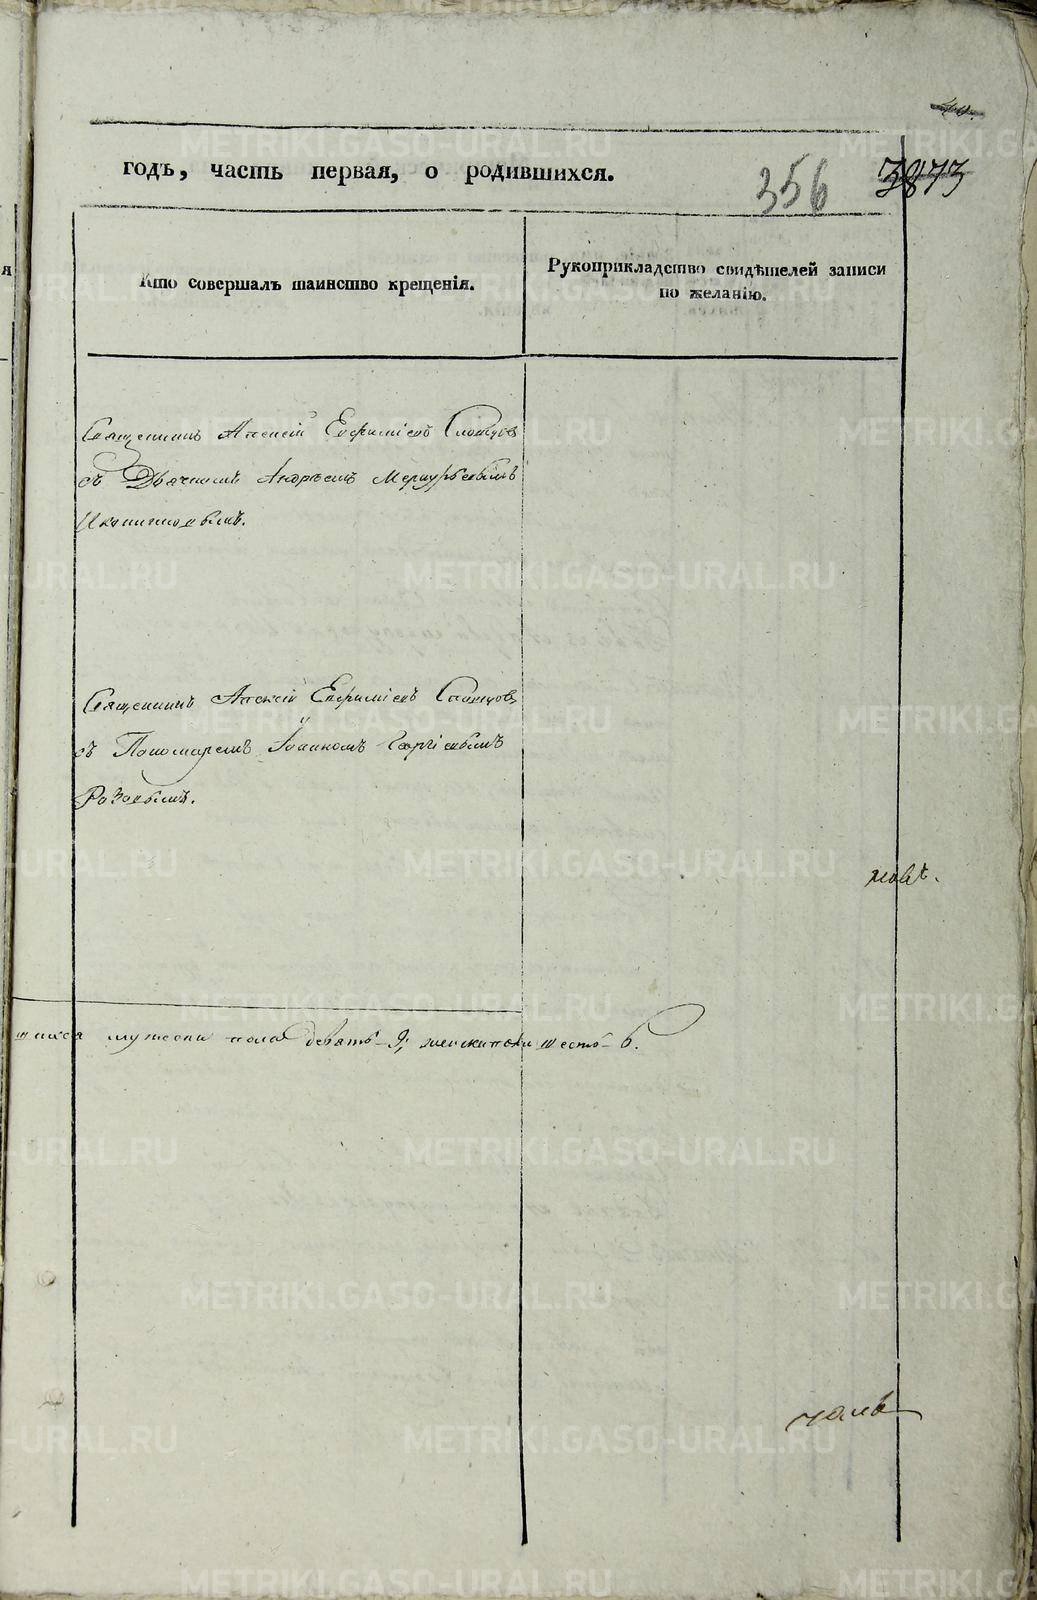 годъ, часть первая, о родившихся.
356
3873
я
Кто совершалъ таинство крещенія.
Рукоприкладство свидѣтелей записи
по желанію.
Священникъ Алексій Евфиміевъ Словцовъ
съ Дьячкомъ Андреемъ Меркурьевымъ
Иконниковымъ.
Священникъ Алексій Евфиміевъ Словцовъ
съ Пономаремъ Іоанномъ Георгіевымъ
Розовымъ.
шихся мужеска пола девять - 9, женска пола шесть - 6.
METRIKI.GASO-URAL.RU